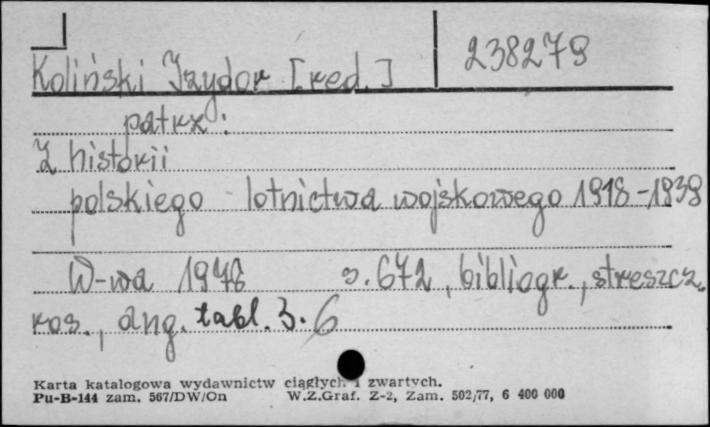 238279
Koliński Izydor [red.]
patrz:
Z historii
polskiego lotnictwa wojskowego 1918-1939
W-wa 1978 s. 672, bibliogr., streszcz.
ros., ang. tabl. 3. 6
Karta katalogowa wydawnictw ciągłych i zwartych.
Pu-B-144 zam. 567/DW/On W.Z.Graf. Z-2, Zam. 502/77, 6 400 000